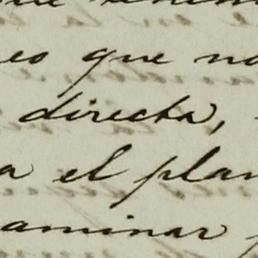 eo que no
directa,
a el plan
aminar